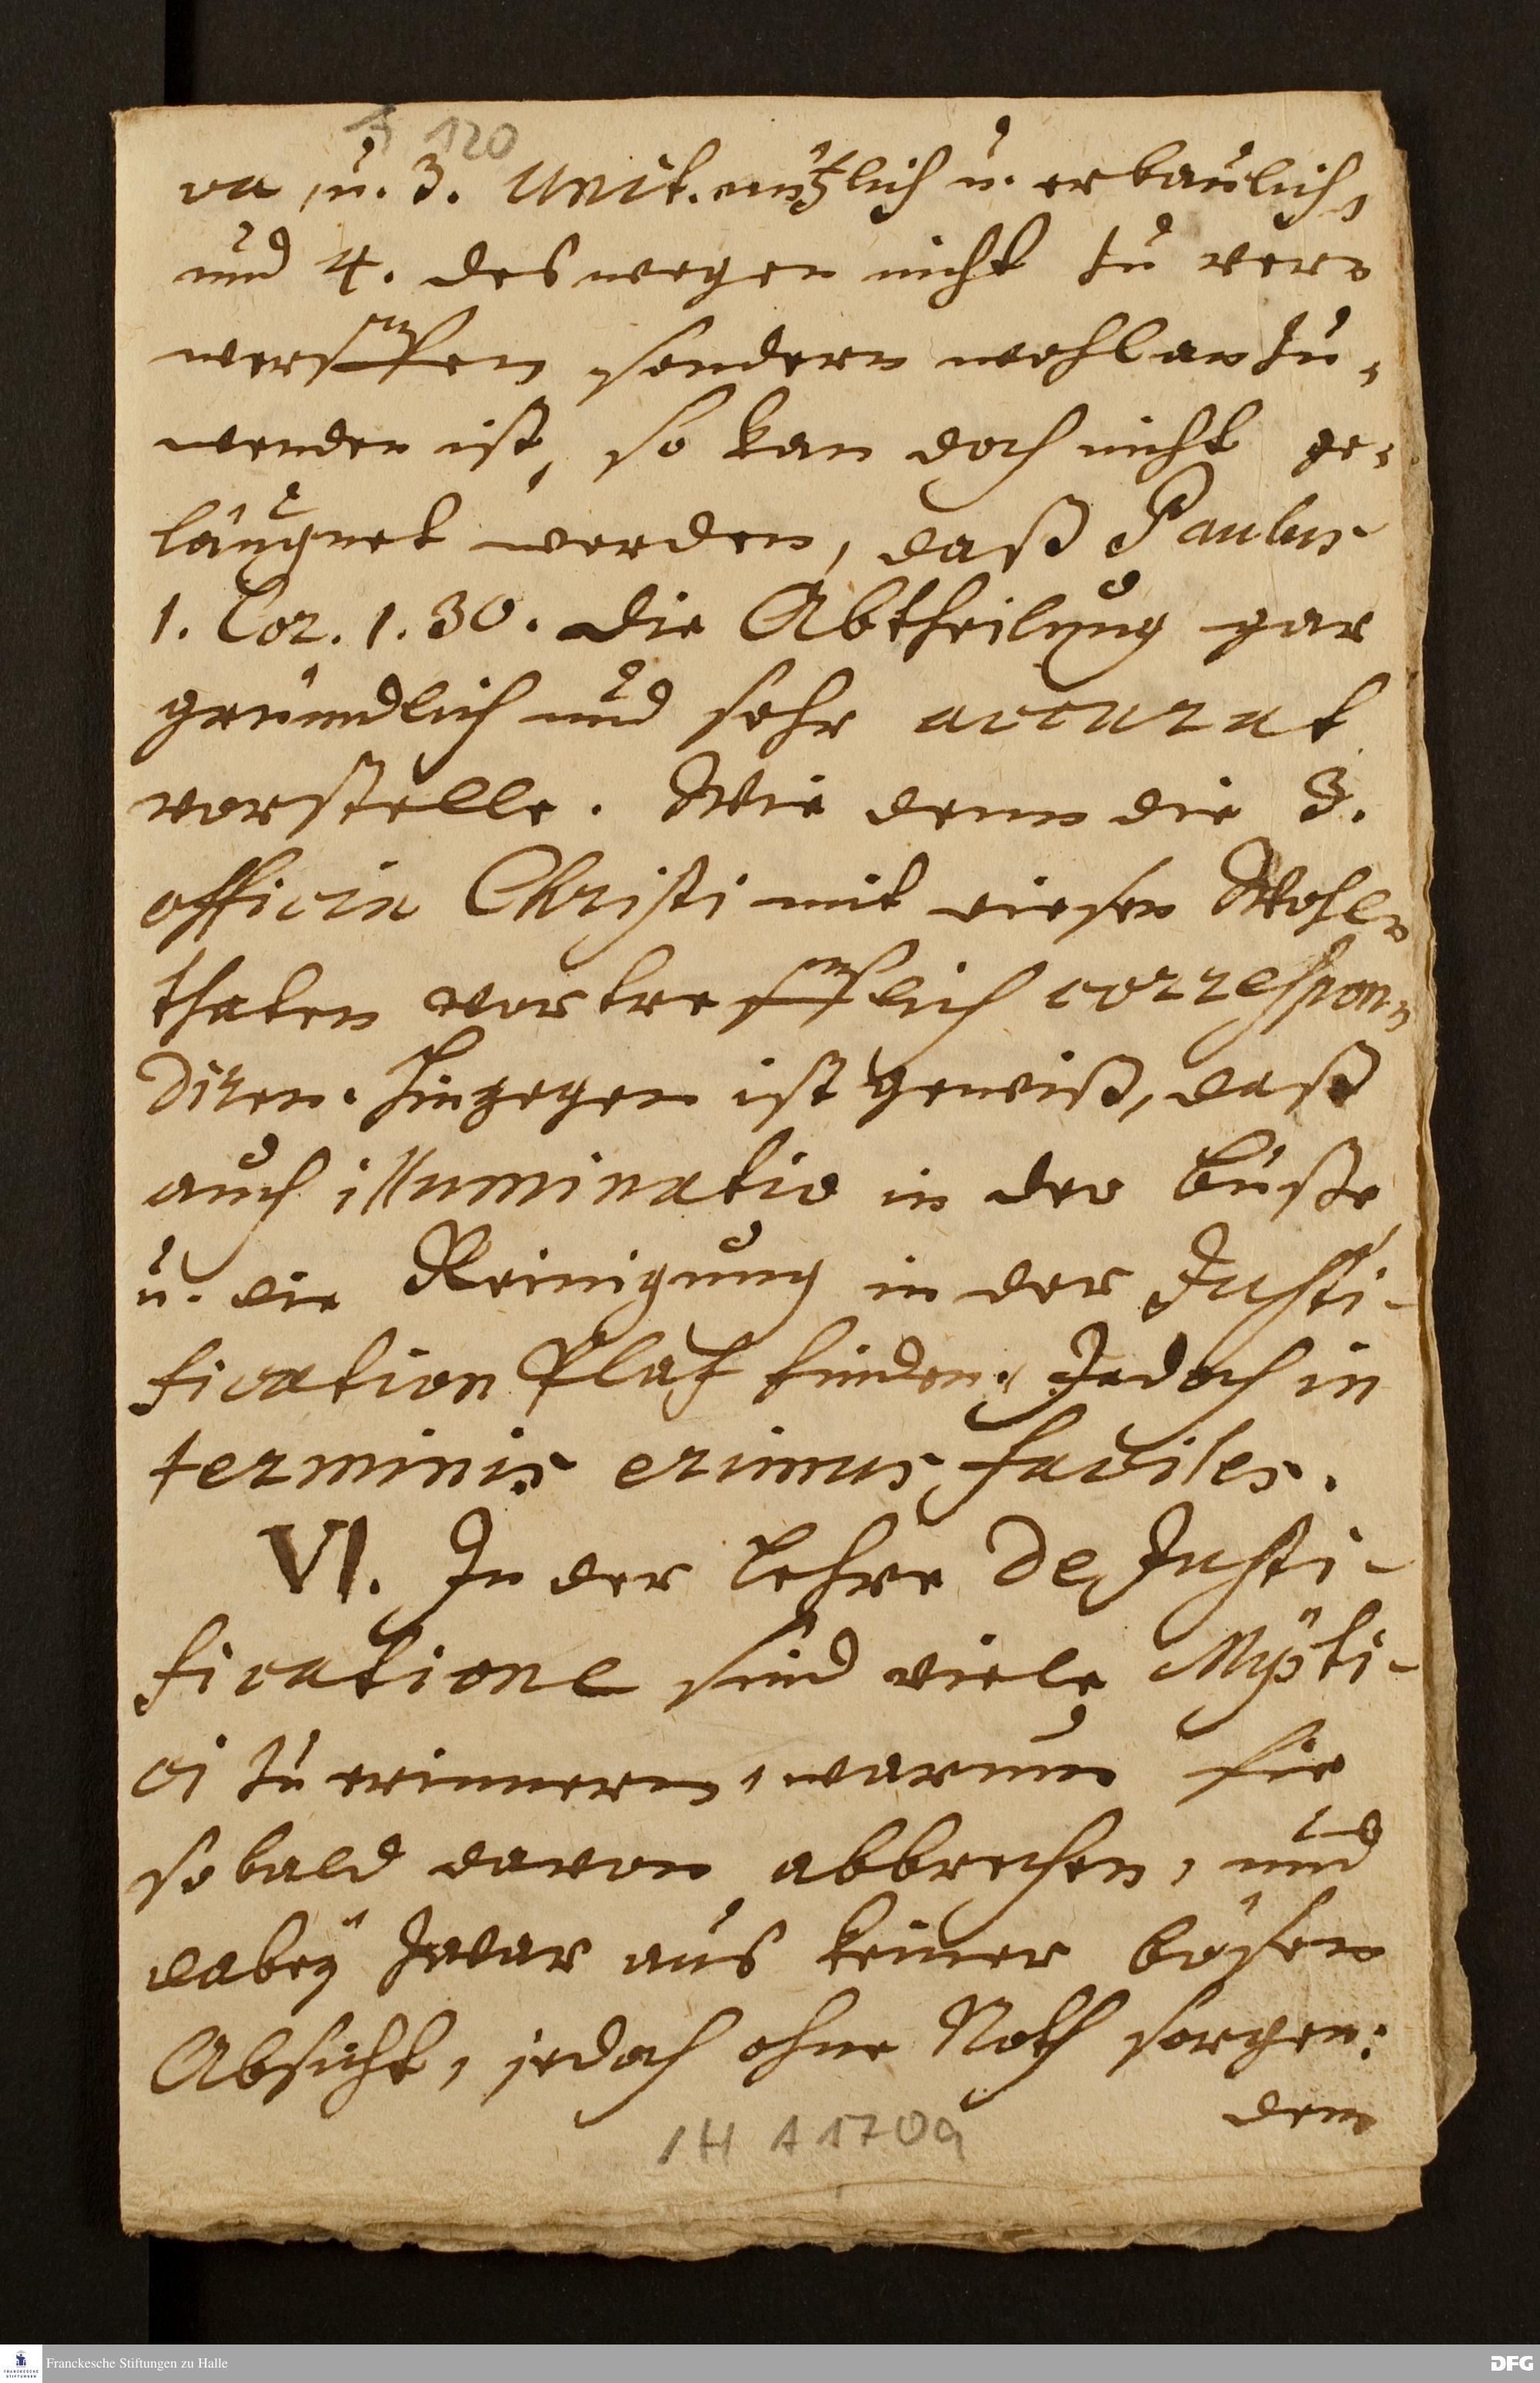 A 120
va, u. 3. Unit. nützlich u. erbaulich,
und 4. deswegen nicht zu ver-
werffen sondern wohl anzu-
wenden ist, so kan doch nicht ge-
läugnet werden, daß Paulus
1. Cor. 1. 30. die Abtheilung gar
gründlich und sehr accurat
vorstelle. Wie denn die 3.
officia Christi mit diesen Wohl-
thaten vortrefflich correspon-
diren. Hingegen ist gewiß, daß
auch illuminatio in der Buße
u. die Reinigung in der Justi-
fication Platz finden. Jedoch in
terminis erimus faciles.
VI. In der Lehre de Justi-
ficatione sind viele Mysti-
ci zu erinnern, warum sie
so bald davon abbrechen, und
dabey zwar aus keiner bösen
Absicht, jedoch ohne Noth sorgen:
denn
1H A 170a
Franckesche Stiftungen zu Halle
FRANCKESCHE
STIFTUNGEN
DFG